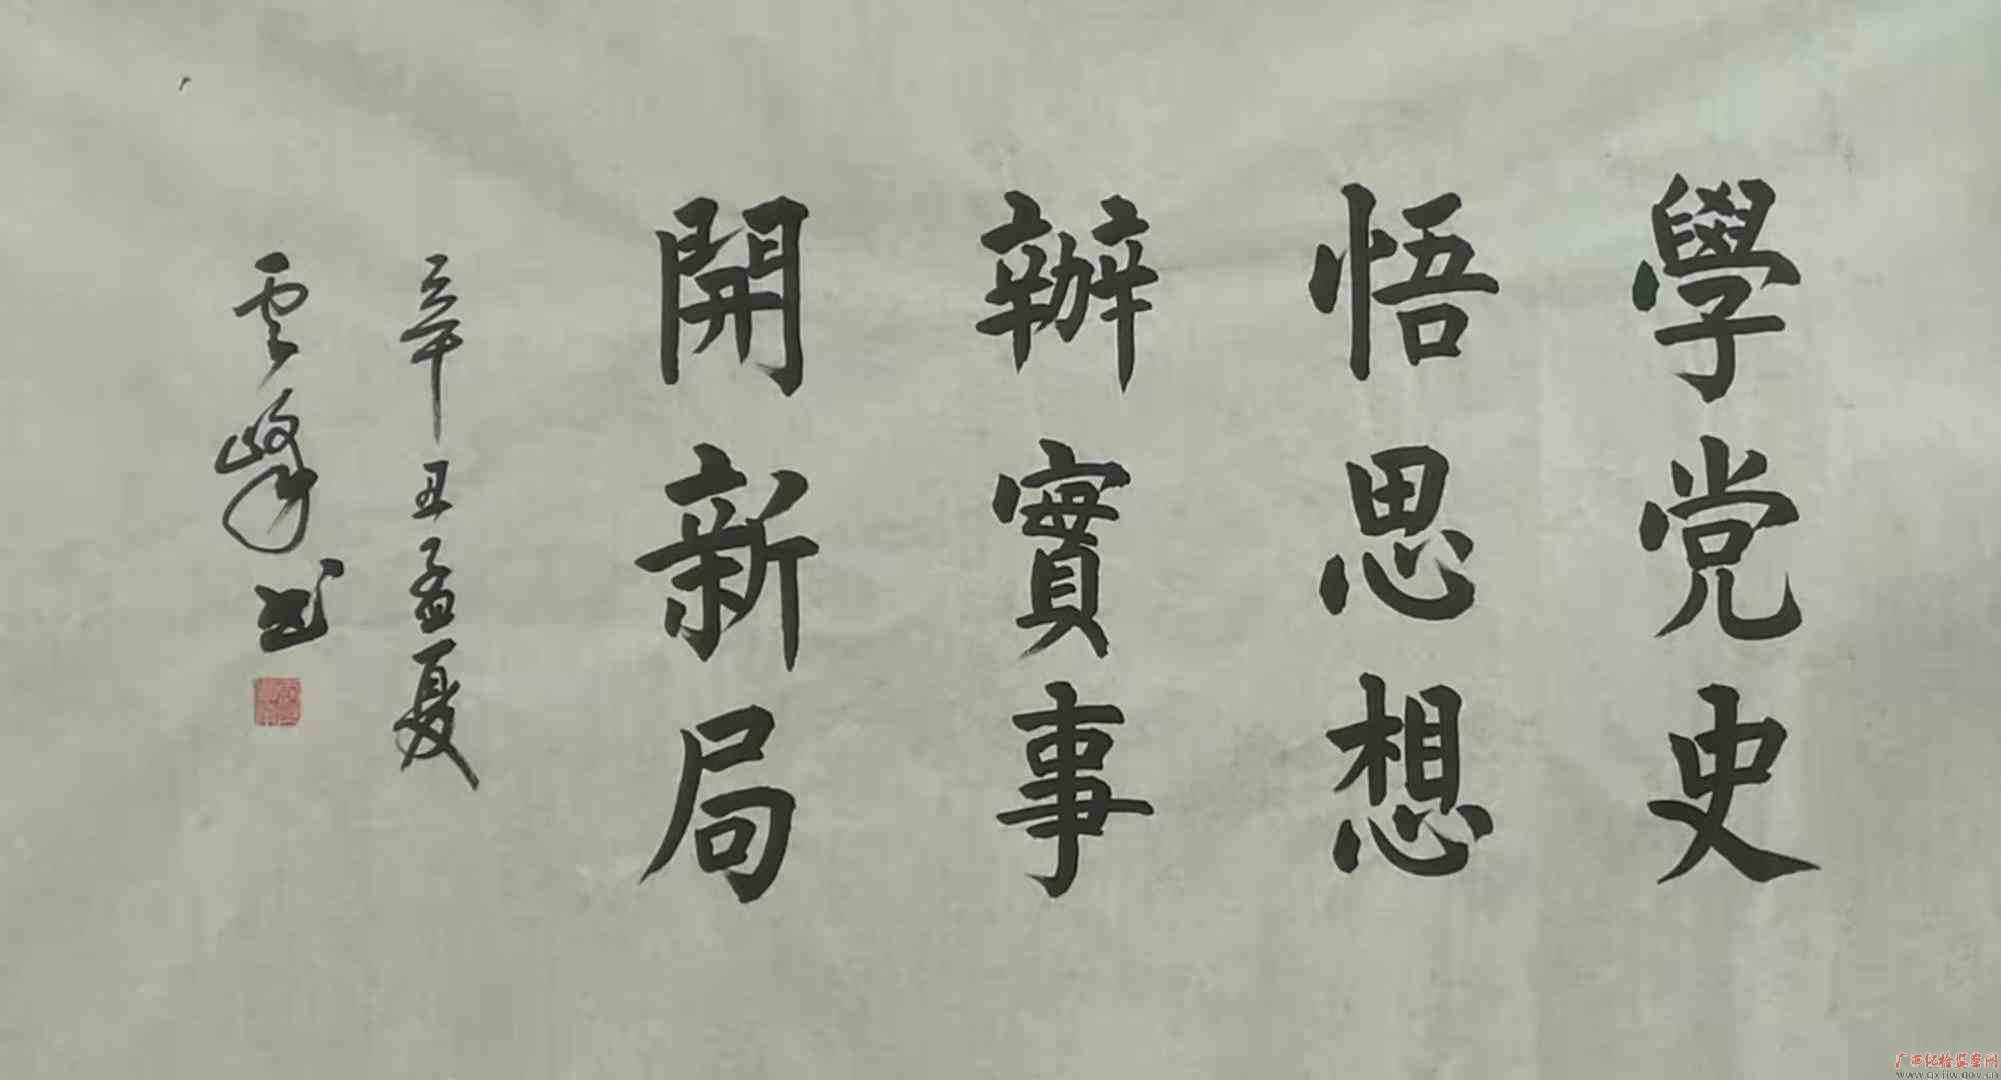 學党史
悟思想
辦實事
開新局
辛丑孟夏
雲峰书
广西纪检监察网
www.gxjjw.gov.cn